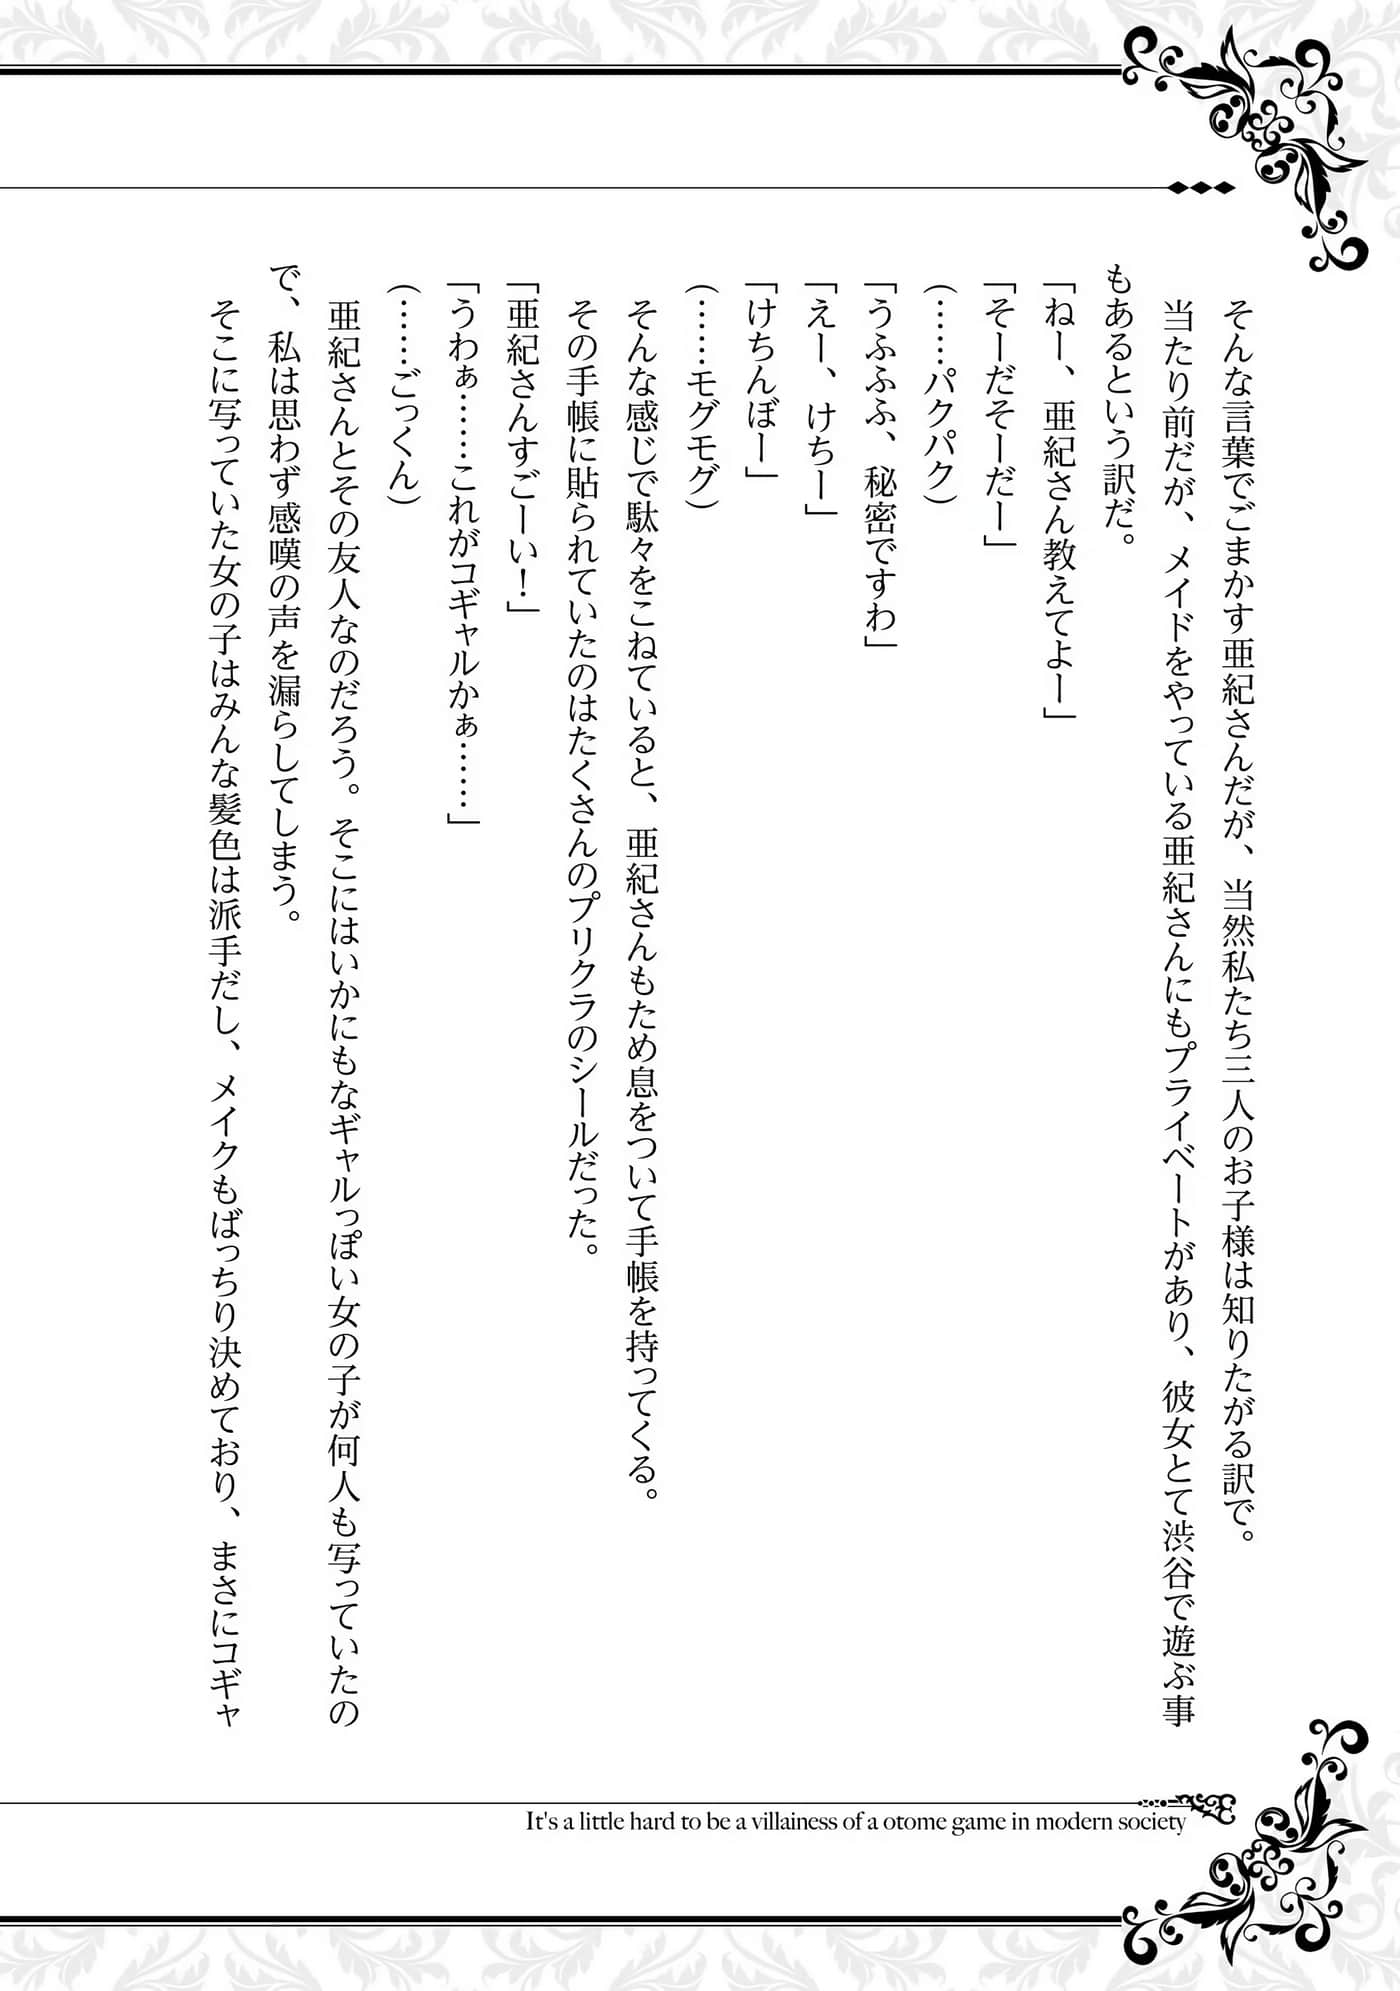 そんな言葉でごまかす亜紀さんだが、当然私たち三人のお子様は知りたがる訳で。
当たり前だが、メイドをやっている亜紀さんにもプライベートがあり、彼女とて渋谷で遊ぶ事
もあるという訳だ。
「ねー、亜紀さん教えてよー」
「そーだそーだー」
（……パクパク）
「うふふふ、秘密ですわ」
「えー、けちー」
「けちんぼー」
（……モグモグ）
そんな感じで駄々をこねていると、亜紀さんもため息をついて手帳を持ってくる。
その手帳に貼られていたのはたくさんのプリクラのシールだった。
「亜紀さんすごーい！」
「うわぁ……これがコギャルかぁ……」
（……ごっくん）
亜紀さんとその友人なのだろう。そこにはいかにもなギャルっぽい女の子が何人も写っていたの
で、私は思わず感嘆の声を漏らしてしまう。
そこに写っていた女の子はみんな髪色は派手だし、メイクもばっちり決めており、まさにコギャ
It's a little hard to be a villainess of a otome game in modern society